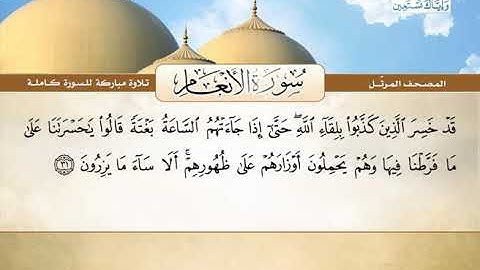 وإياك نستعين
المصحف المرتل
سورة الأنعام
تلاوة مباركة للسورة كاملة
قَدْ خَسِرَ ٱلَّذِينَ كَذَّبُوا۟ بِلِقَآءِ ٱللَّهِ ۖ حَتَّىٰٓ إِذَا جَآءَتْهُمُ ٱلسَّاعَةُ بَغْتَةً قَالُوا۟ يَٰحَسْرَتَنَا عَلَىٰ
مَا فَرَّطْنَا فِيهَا وَهُمْ يَحْمِلُونَ أَوْزَارَهُمْ عَلَىٰ ظُهُورِهِمْ ۚ أَلَا سَآءَ مَا يَزِرُونَ ٣١